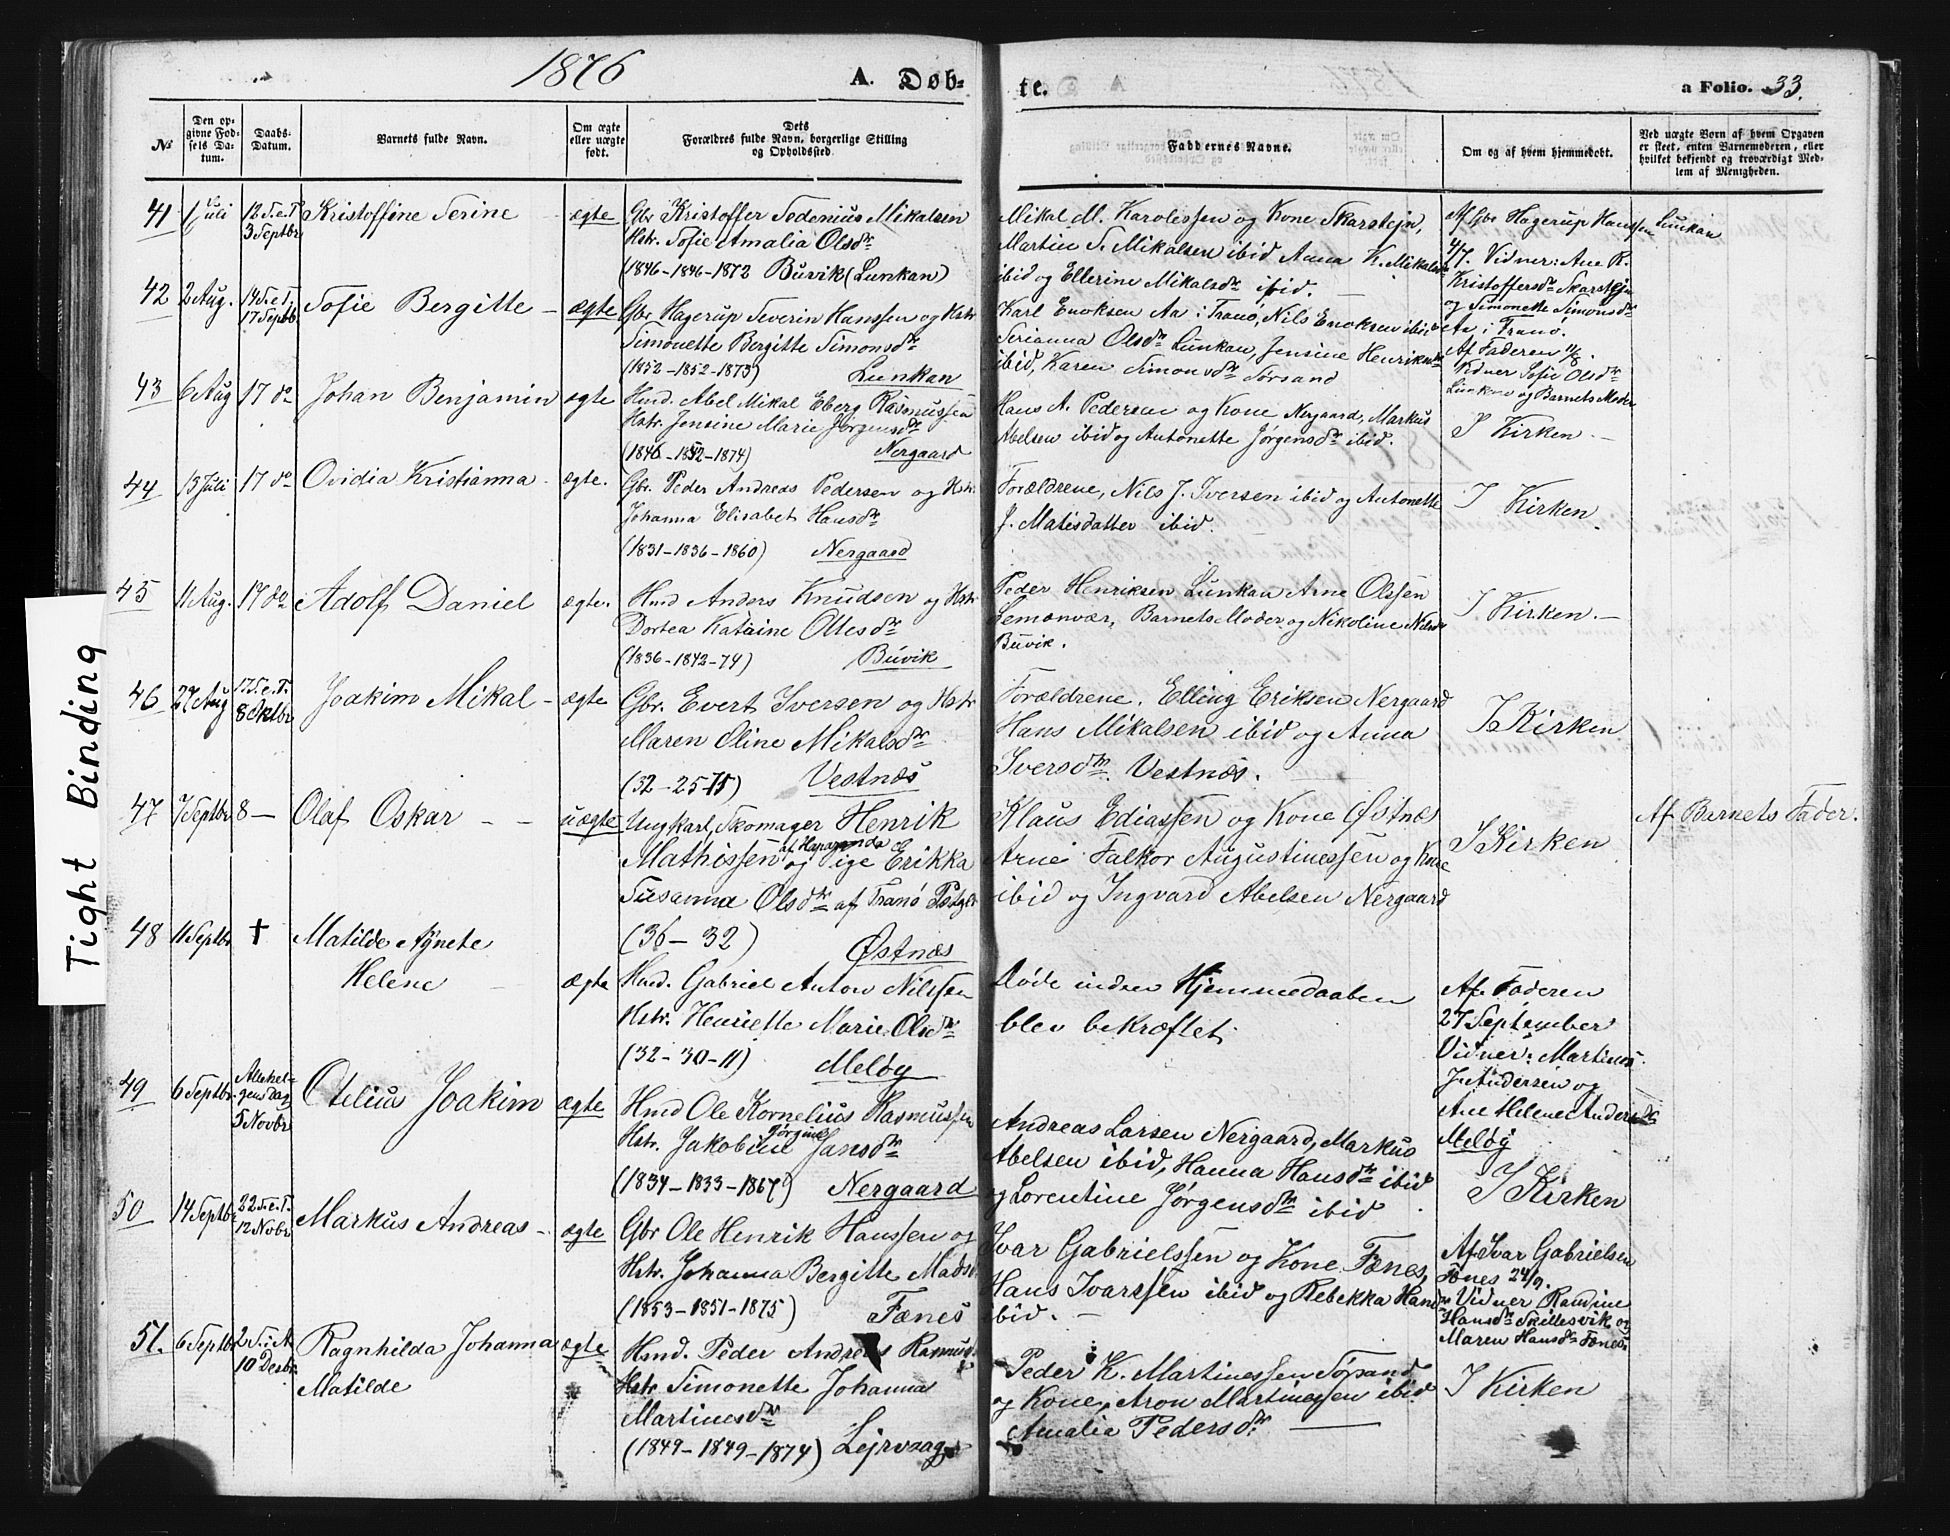 1876
A. Døb-
te.
a Folio. 33.
Tight Binding
No
Den op-
givne Fød-
sels Da-
tum.
Daabs-
Datum.
Barnets fulde Navn.
Om ægte
eller uægte
født.
Dets
Forældres fulde Navn, borgerlige Stilling
og Opholdssted.
Faddernes Navne.
Om og af hvem hjemmedøbt.
Ved uægte Børn af hvem Opgaven
er skeet, enten Barnemoderen, eller
hvilket bekjendt og troværdigt Med-
lem af Menigheden.
41
1 Juli
12 S. e. T.
3 Septbr
Kristoffine Serine
ægte
Gbr Kristoffer Sedenius Mikalsen
Hstr. Sofie Amalia Olsdtr
(1846-1846-1872 Buvik (Lunkan)
Mikal M. Karolissen og Kone Skarstejn,
Martin S. Mikalsen ibid Anna K. Mikalsdr
ibid og Ellerine Mikalsdr ibid.
Af Gbr Hagerup Hanssen Lunkan
4/7. Vidner: Ane K.
Kristoffersdr Skarstejn
og Simonette Simonsdr
Aa i Tranø.
42
2 Aug.
14 S. e. T.
17 Septb.
Sofie Bergitte
ægte
Gbr Hagerup Severin Hanssen og Hstr
Simonette Bergitte Simonsdr
(1852-1852-1873) Lunkan
Karl Enoksen Aa i Tranø, Nils Enoksen ibid
Serianna Olsdr Lunkan, Jensine Henriksdr
ibid, Karen Simonsdr Sørsand
Af Faderen 11/8
Vidner Sofie Olsdr
Lunkan og Barnets Moder
43
6 Aug
17 do
Johan Benjamin
ægte
Hmd. Abel Mikal Eberg Rasmussen
Hstr. Jensine Marie Jørgensdr
(1846-1852-1874) Nergaard
Hans A. Pedersen og Kone Nergaard, Markus
Abelsen ibid og Antonette Jørgensdr ibid.
I Kirken.
44
13 Juli
17 do
Ovidia Kristianna
ægte.
Gbr. Peder Andreas Pedersen og Hstr.
Johanna Elisabet Hansdr
(1831-1836-1860) Nergaard
Forældrene, Nils J. Iversen ibid og Antonette
J. Matisdatter ibid.
I Kirken.
45
11 Aug.
17 do
Adolf Daniel
ægte.
Hmd Anders Knudsen og Hstr
Dortea Kataine Ottesdr
(1836-1842-74) Buvik
Peder Henriksen Lunkan Arne Olssen
Lemonvær, Barnets Moder og Nikoline Nilsdr
Buvik.
I Kirken.
46
27 Aug
17 S. e. T.
8 Oktbr
Joakim Mikal
ægte
Gbr. Evert Iversen og Hstr
Maren Oline Mikalsdr
(32-25-75) Vestnæs
Forældrene. Elling Eriksen Nergaard
Hans Mikalsen ibid og Anna
Iversdtr. Vestnæs.
I Kirken
47
7 Septbr
8
Olaf Oskar
uægte
Ungkarl, Skomager Henrik
Mathissen af Haparanda og Pige Erikka
Susanna Olsdr af Tranø Pstgld
(36-32) Østnæs
Klaus Ediassen og Kone Østnæs
Arne Falkor Augustinessen og Kone
ibid og Ingvard Abelsen Nergaard
I Kirken
Af Barnets Fader.
48
11 Septbr
†
Matilde Agnete
Helene
ægte
Hmd. Gabriel Anton Nilssen
Hstr. Henriette Marie Olsdr
(32-30-11) Meløy
Døde inden Hjemmedaaben
blev bekræftet.
Af Faderen
27 September
Vidner: Martines
J. Andersen og
Ane Helene Andersdr
Meløy
49
6 Septbr.
Allehel-
gensdag
5 Novbr
Otelius Joakim
ægte
Hmd Ole Kornelius Rasmussen
Hstr. Jakobine Jørgine Jansdr
(1834-1833-1867) Nergaard
Andreas Larsen Nergaard, Markus
Abelsen ibid, Hanna Hansdr ibid
og Lorentine Jørgensdtr ibid
I Kirken
50
14 Septbr
22 S. e. T.
12 Novbr
Markus Andreas
ægte
Gbr Ole Henrik Hanssen og
Hstr. Johanna Bergitte Madsdr
(1853-1851-1875) Fænes
Ivar Gabrielssen og Kone Fænes,
Hans Ivarssen ibid og Rebekka Hansdr
ibid.
Af Ivar Gabrielsen
Fænes 24/9.
Vidner Randine
Hansdr Skillesvik og
Maren Hansdr Fænes.
51.
6 Septbr
2 S. i A
10 Desbr.
Ragnhilda Johanna
Matilde
ægte
Hmd. Peder Andreas Rasmus.
Hstr Simonette Johanna
Martinesdr
(1849-1849-1874) Lejrvaag
Peder K. Martinessen Sørsand
og Kone, Aron Martinessen ibid
Amalia Pedersdr
I Kirken